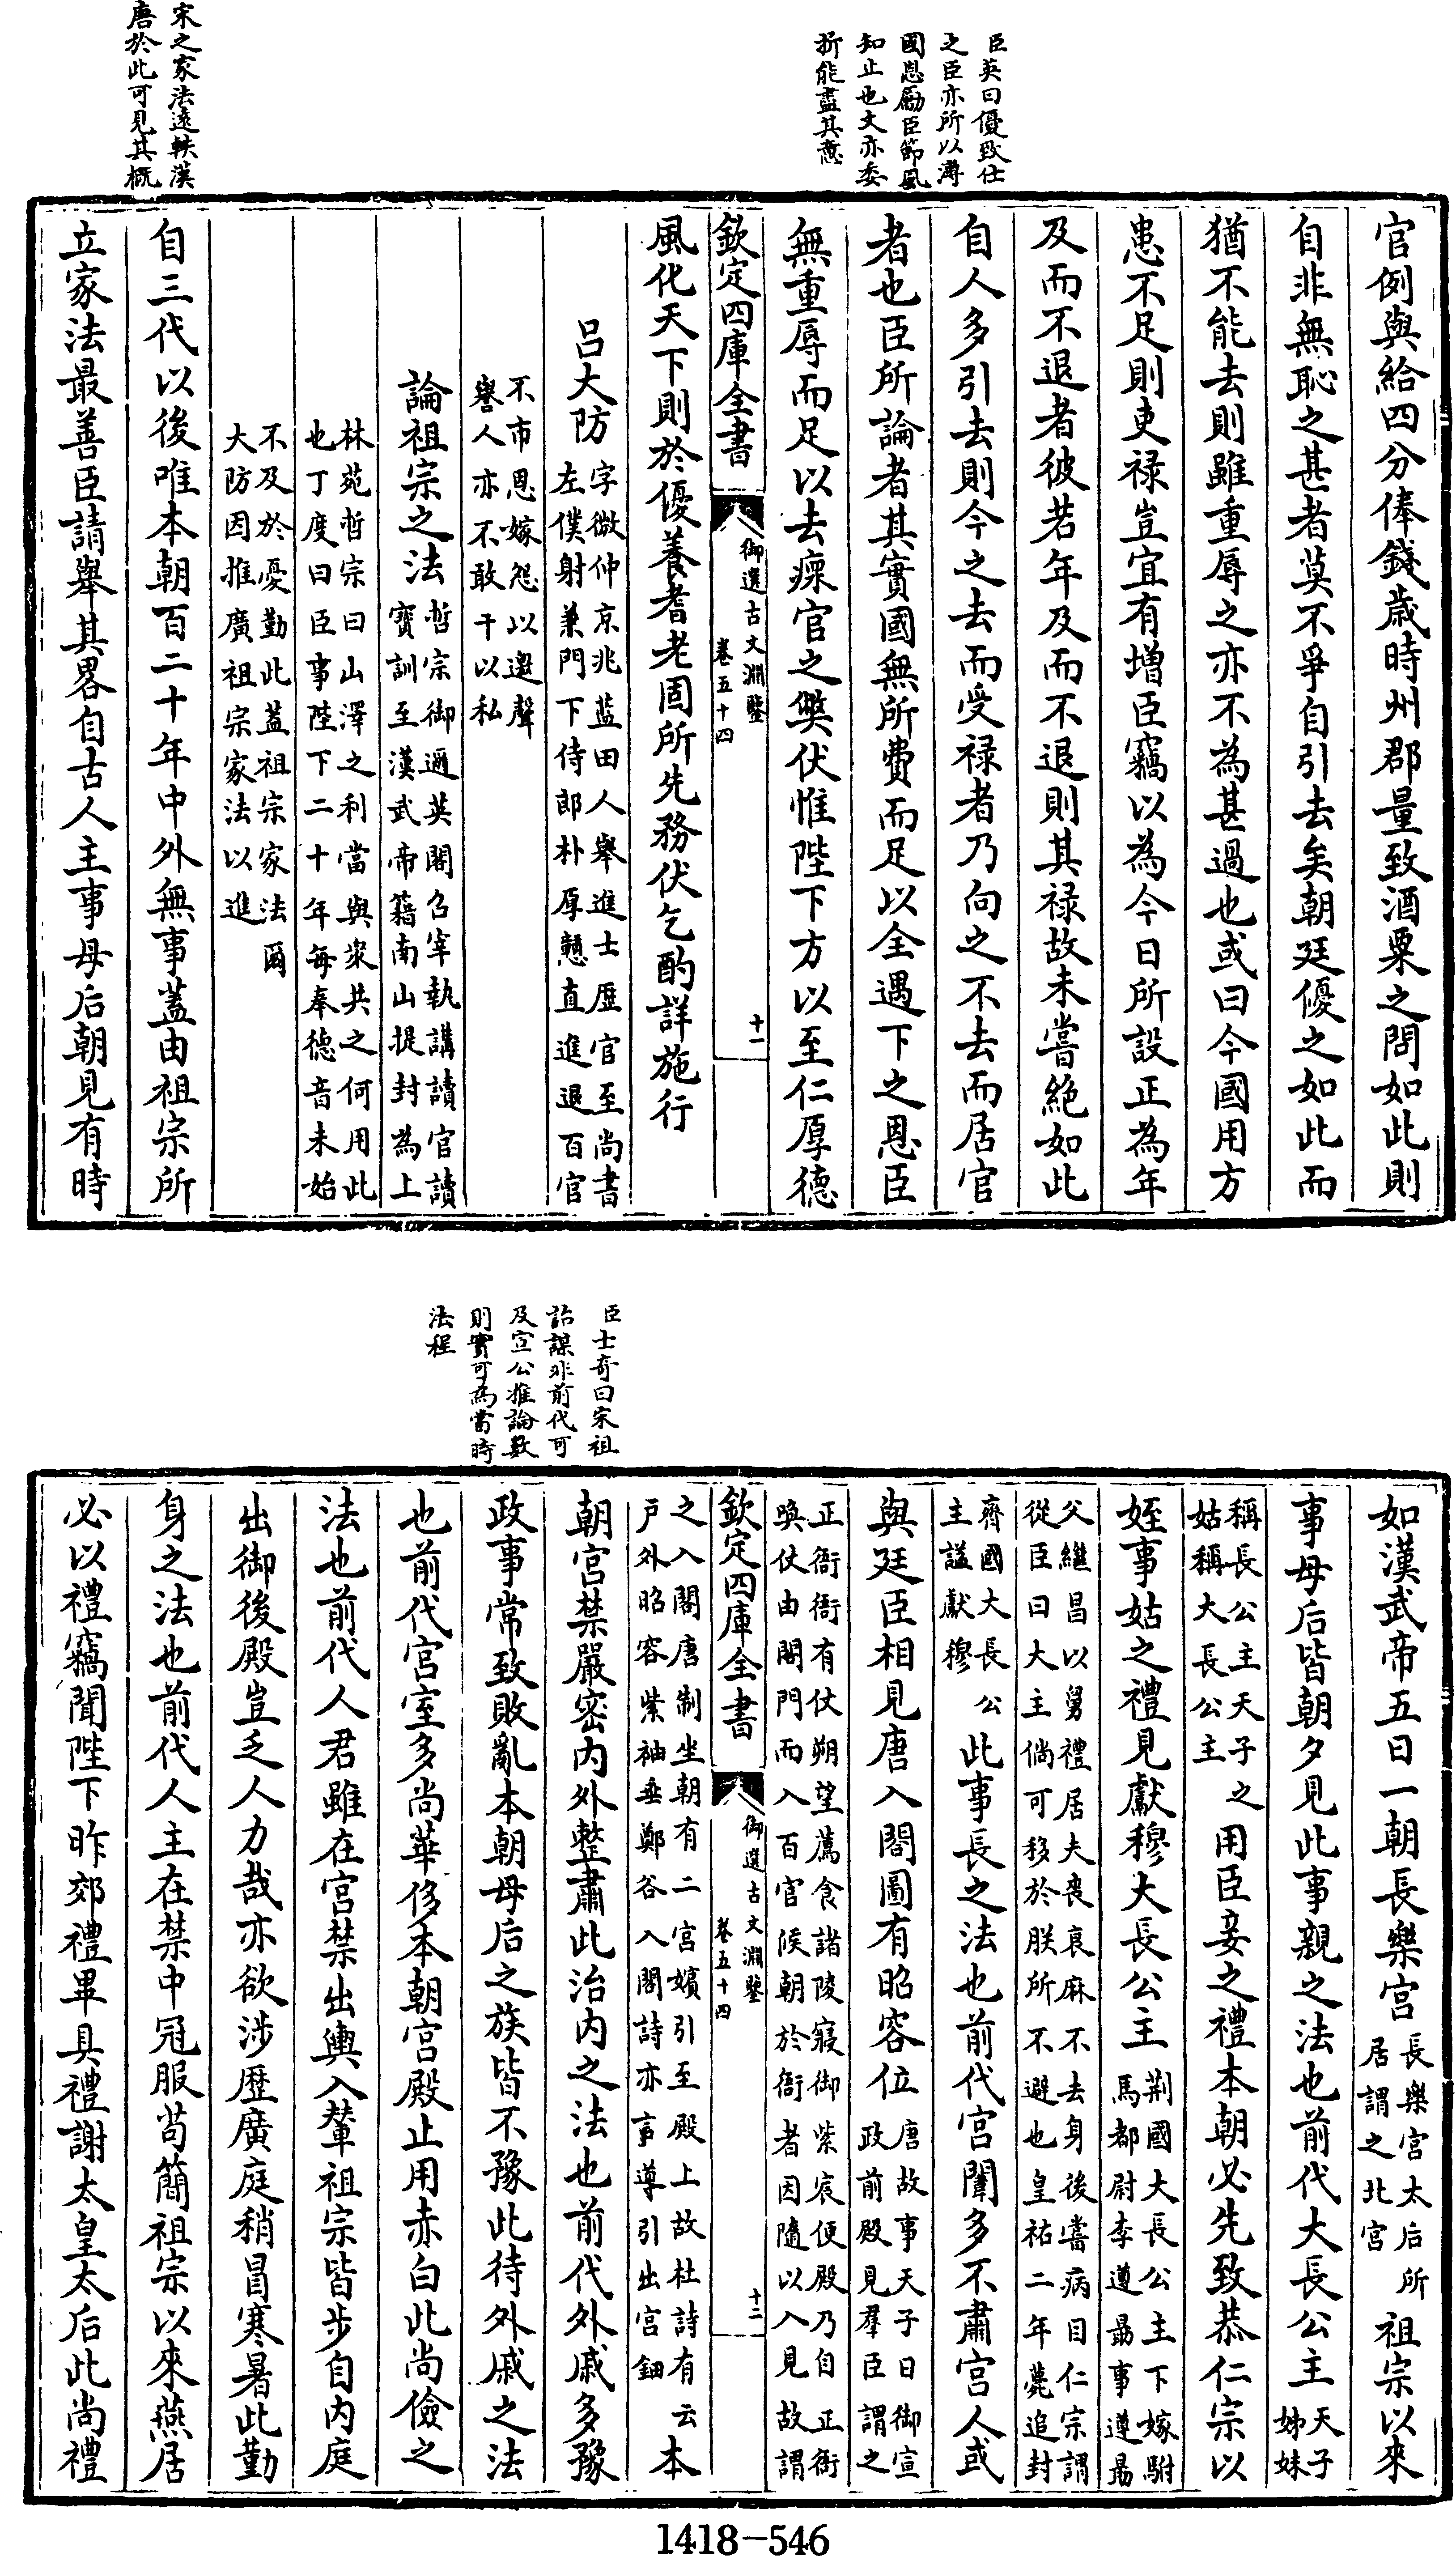 臣英曰優致仕
之臣亦所以溥
國恩勵臣節風
知止也文亦委
折能盡其意
宋之家法遠軼漢
唐於此可見其概
官例與給四分俸錢歲時州郡量致酒粟之問如此則
自非無恥之甚者莫不爭自引去矣朝廷優之如此而
猶不能去則雖重辱之亦不為甚過也或曰今國用方
患不足則吏祿豈宜有增臣竊以為今日所設正為年
及而不退者彼若年及而不退則其祿故未嘗絶如此
自人多引去則今之去而受祿者乃向之不去而居官
者也臣所論者其實國無所費而足以全遇下之恩臣
無重辱而足以去瘝官之弊伏惟陛下方以至仁厚德
欽定四庫全書
御選古文淵鑒
卷五十四
十一
風化天下則於優養耆老固所先務伏乞酌詳施行
呂大防
字微仲京兆藍田人舉進士歷官至尚書
左僕射兼門下侍郎朴厚戇直進退百官
不市恩嫁怨以邀聲
譽人亦不敢干以私
論祖宗之法
哲宗御邇英閣召宰執講讀官讀
寶訓至漢武帝籍南山提封為上
林苑哲宗曰山澤之利當與衆共之何用此
也丁度曰臣事陛下二十年每奉德音未始
不及於憂勤此蓋祖宗家法爾
大防因推廣祖宗家法以進
自三代以後唯本朝百二十年中外無事蓋由祖宗所
立家法最善臣請舉其畧自古人主事母后朝見有時
臣士奇曰宋祖
詒謀非前代可
及宣公推論數
則實可為當時
法程
如漢武帝五日一朝長樂宮
長樂宮太后所
居謂之北宮
祖宗以來
事母后皆朝夕見此事親之法也前代大長公主
天子
姊妹
稱長公主天子之
姑稱大長公主
用臣妾之禮本朝必先致恭仁宗以
姪事姑之禮見獻穆大長公主
荆國大長公主下嫁駙
馬都尉李遵勗事遵勗
父繼昌以舅禮居夫喪哀麻不去身後嘗病目仁宗謂
從臣曰大主倘可移於朕所不避也皇祐二年薨追封
齊國大長公
主謚獻穆
此事長之法也前代宮闈多不肅宮人或
與廷臣相見唐入閤圖有昭容位
唐故事天子日御宣
政前殿見羣臣謂之
正衙衙有仗朔望薦食諸陵寢御紫宸便殿乃自正衙
喚仗由閤門而入百官候朝於衙者因隨以入見故謂
欽定四庫全書
御選古文淵鑒
卷五十四
十二
之入閤唐制坐朝有二宮嬪引至殿上故杜詩有云
戶外昭容紫袖垂鄭谷入閤詩亦言導引出宮鈿
本
朝宮禁嚴密内外整肅此治内之法也前代外戚多豫
政事常致敗亂本朝母后之族皆不豫此待外戚之法
也前代宮室多尚華侈本朝宮殿止用赤白此尚儉之
法也前代人君雖在宮禁出輿入輦祖宗皆步自内庭
出御後殿豈乏人力哉亦欲涉歷廣庭稍冒寒暑此勤
身之法也前代人主在禁中冠服苟簡祖宗以來燕居
必以禮竊聞陛下昨郊禮畢具禮謝太皇太后此尚禮
1418-546